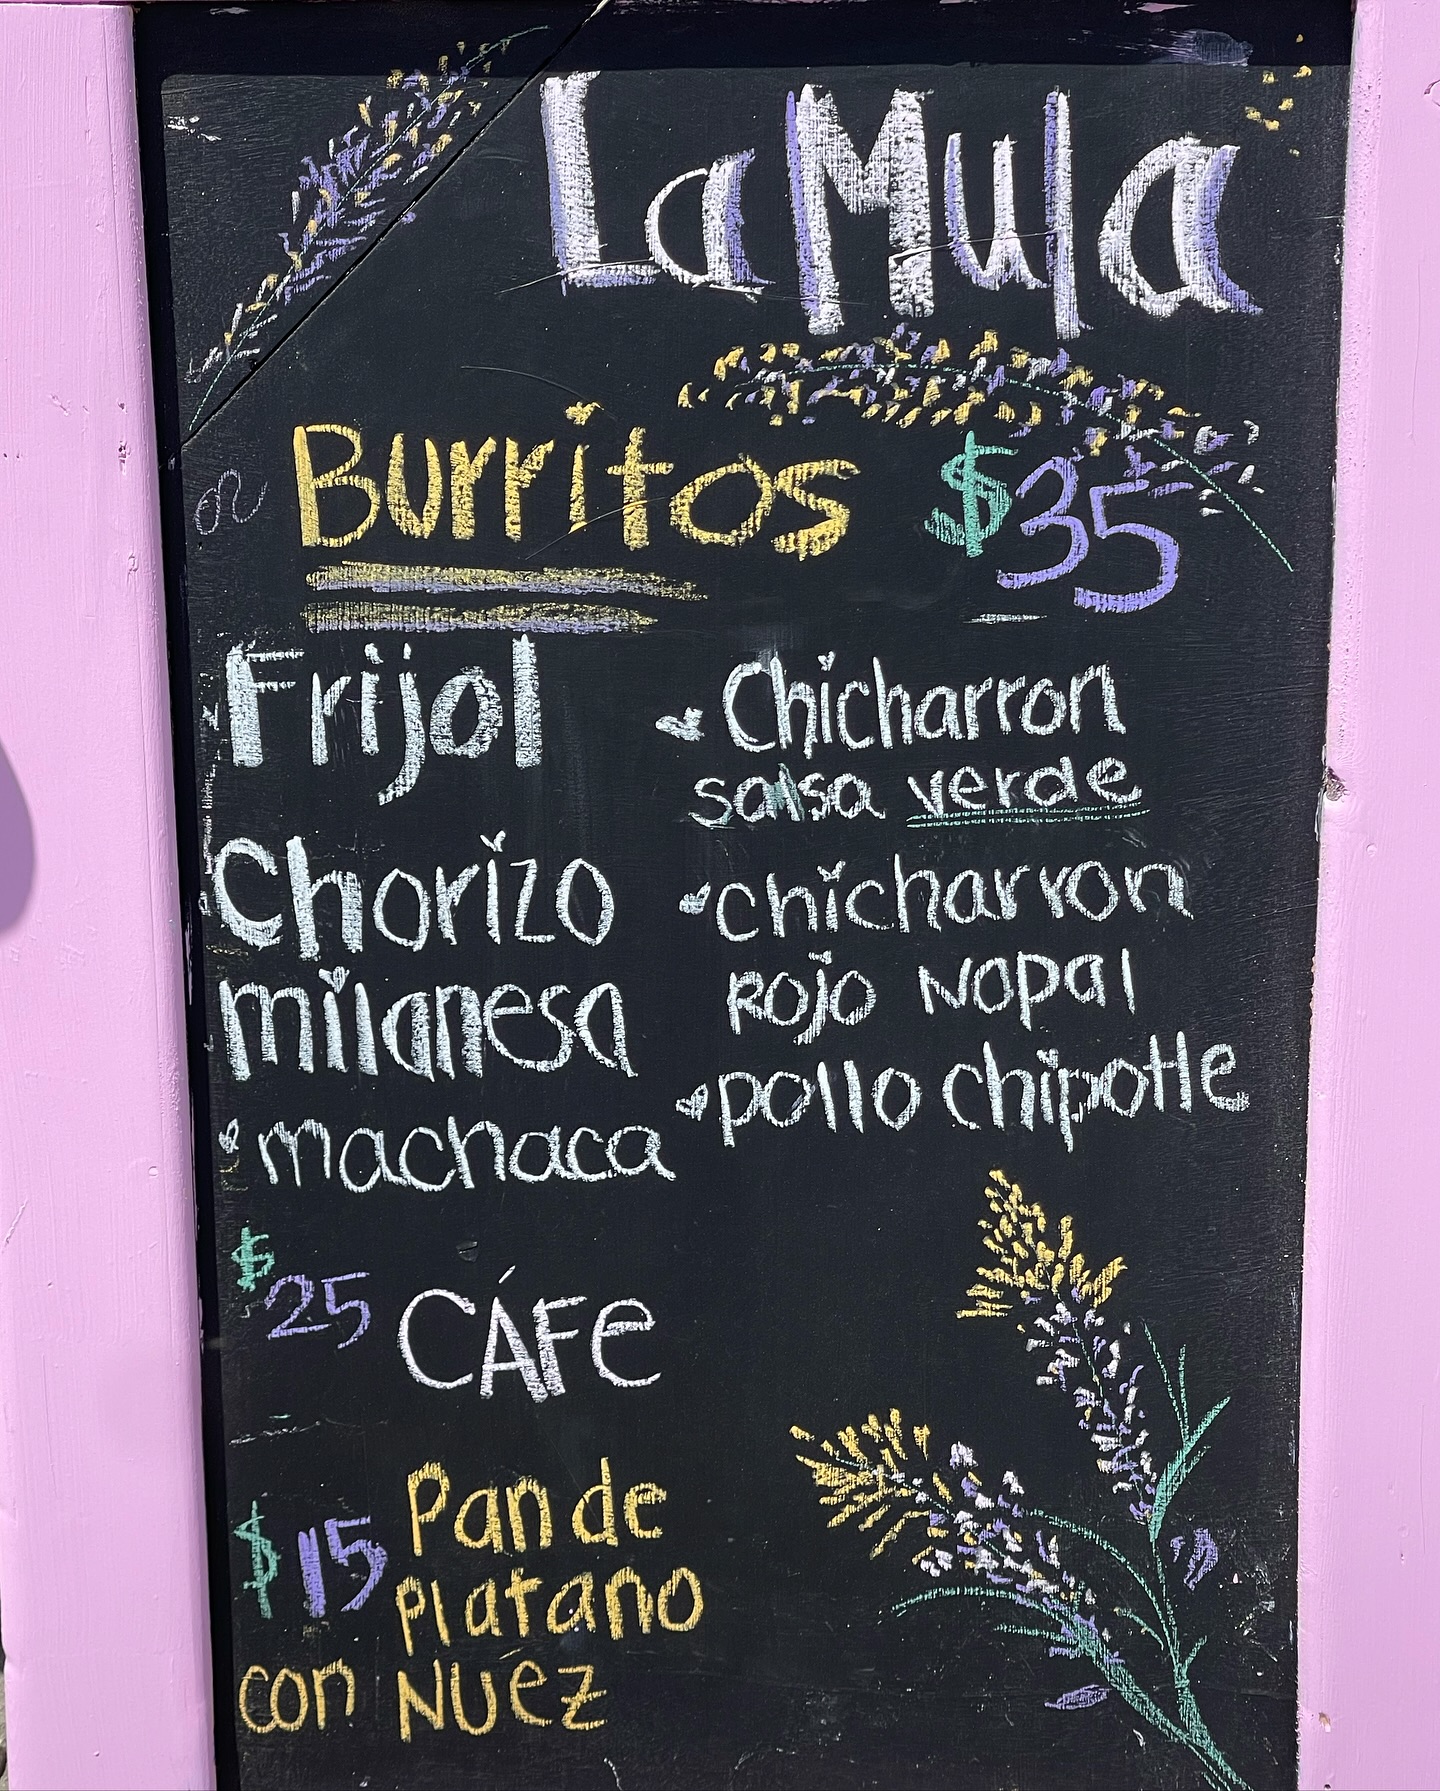 La Mula
Burritos $35
Frijol
Chorizo
milanesa
machaca
Chicharron
salsa verde
chicharron
ROJO NOPAL
pollo chipotle
$25 CÁFe
$15 Pan de
platano
con NUez